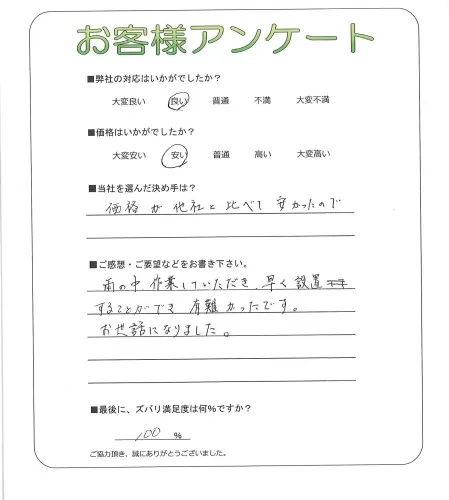 お客様アンケート
■弊社の対応はいかがでしたか？
大変良い 良い 普通 不満 大変不満
■価格はいかがでしたか？
大変安い 安い 普通 高い 大変高い
■当社を選んだ決め手は？
価格が他社と比べて安かったので
■ご感想・ご要望などをお書き下さい。
雨の中作業していただき、早く設置
することができ有難かったです。
お世話になりました。
■最後に、ズバリ満足度は何%ですか？
100 %
ご協力頂き、誠にありがとうございました。